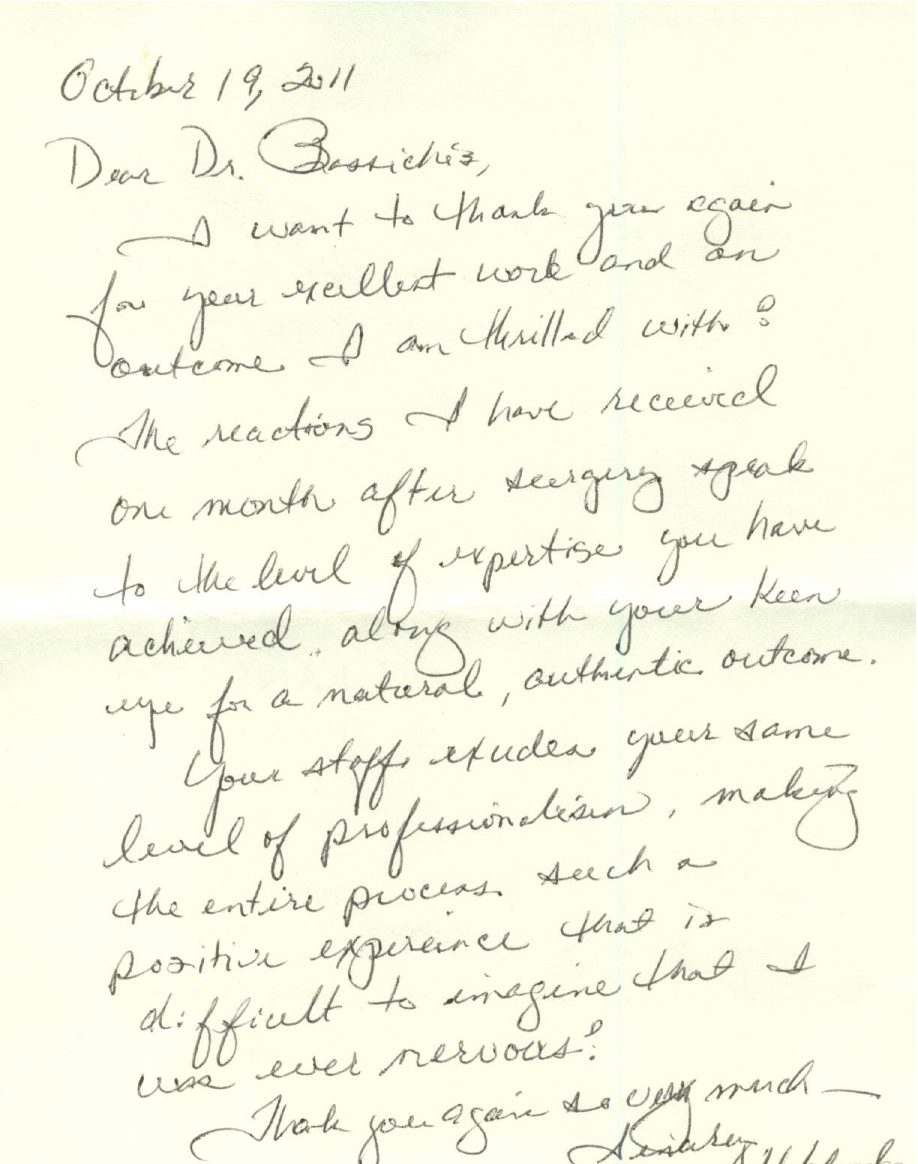 October 19, 2011
Dear Dr. Bassichis,
I want to thank you again
for your excellent work and an
outcome I am thrilled with!
The reactions I have received
one month after surgery speak
to the level of expertise you have
achieved, along with your keen
eye for a natural, authentic outcome.
Your staff exudes your same
level of professionalism, making
the entire process such a
positive expereince that is
difficult to imagine that I
was ever nervous!
Thank you again so very much —
Sincerely